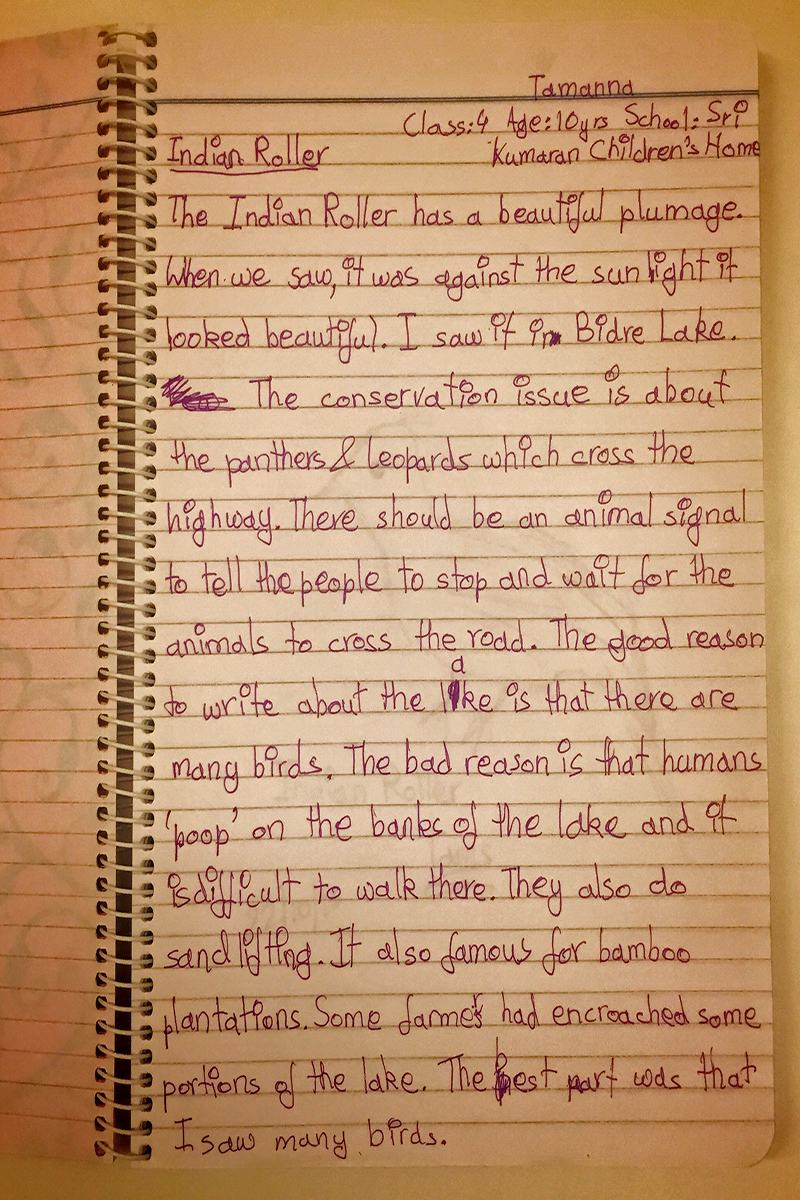 Tamanna
Class:4 Age:10yrs School: Sri
Indian Roller Kumaran Children's Home
The Indian Roller has a beautiful plumage.
When we saw, it was against the sunlight it
looked beautiful. I saw it in Bidre Lake.
The conservation issue is about
the panthers & leopards which cross the
highway. There should be an animal signal
to tell the people to stop and wait for the
animals to cross the road. The good reason
to write about the lake is that there are
many birds. The bad reason is that humans
'poop' on the banks of the lake and it
is difficult to walk there. They also do
sand lifting. It also famous for bamboo
plantations. Some farmers had encroached some
portions of the lake. The best part was that
I saw many birds.